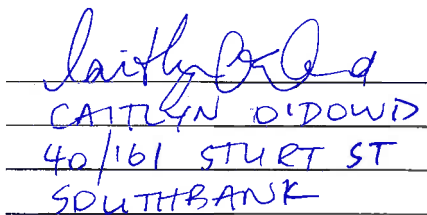 Caitlyn O'Dowd
CAITLYN O'DOWD
40/161 STURT ST
SOUTHBANK